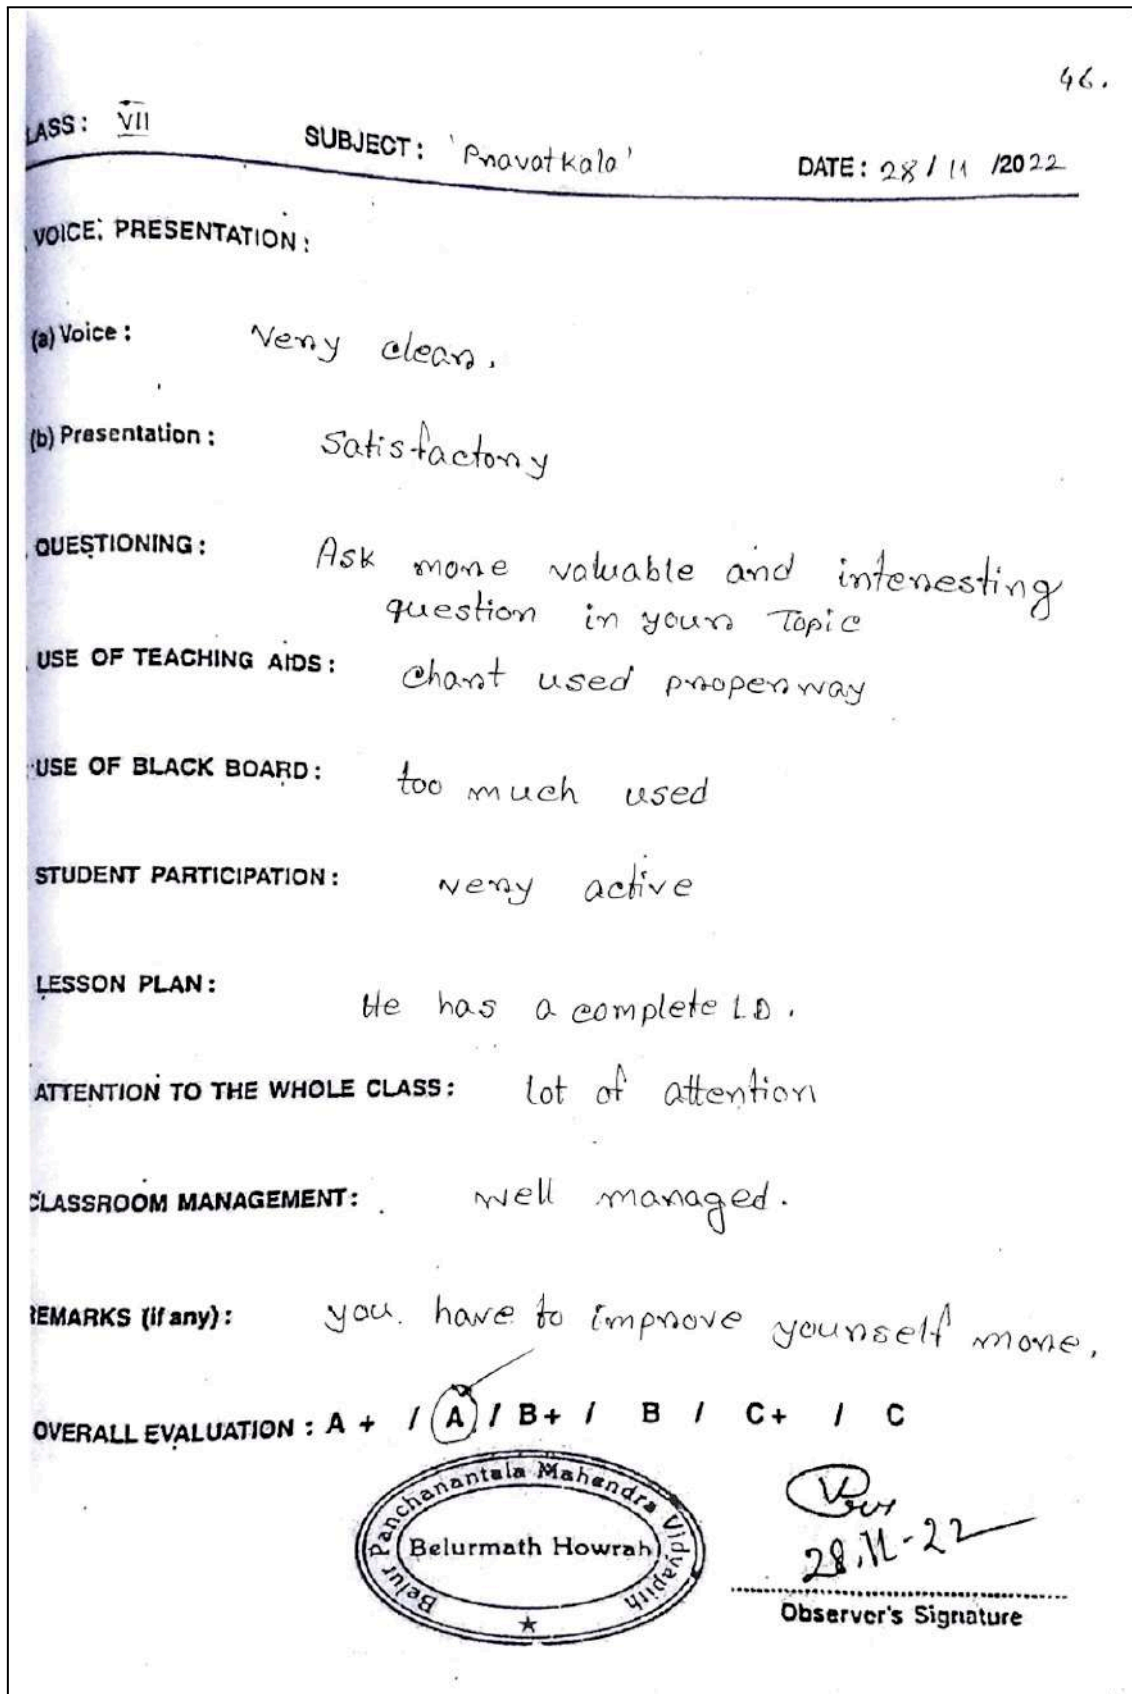 46.
LASS: VII SUBJECT: 'Pravatkala' DATE: 28/11/2022
VOICE: PRESENTATION:
(a) Voice: Very clear.
(b) Presentation: Satisfactory
QUESTIONING: Ask more valuable and interesting
question in your Topic
USE OF TEACHING AIDS: Chart used proper way
USE OF BLACK BOARD: too much used
STUDENT PARTICIPATION: very active
LESSON PLAN: He has a complete L.D.
ATTENTION TO THE WHOLE CLASS: lot of attention
CLASSROOM MANAGEMENT: well managed.
REMARKS (if any): you have to improve yourself more.
OVERALL EVALUATION: A+ / A / B+ / B / C+ / C
Belur Panchanantala Mahendra Vidyapith
Belurmath Howrah
28.11-22
Observer's Signature